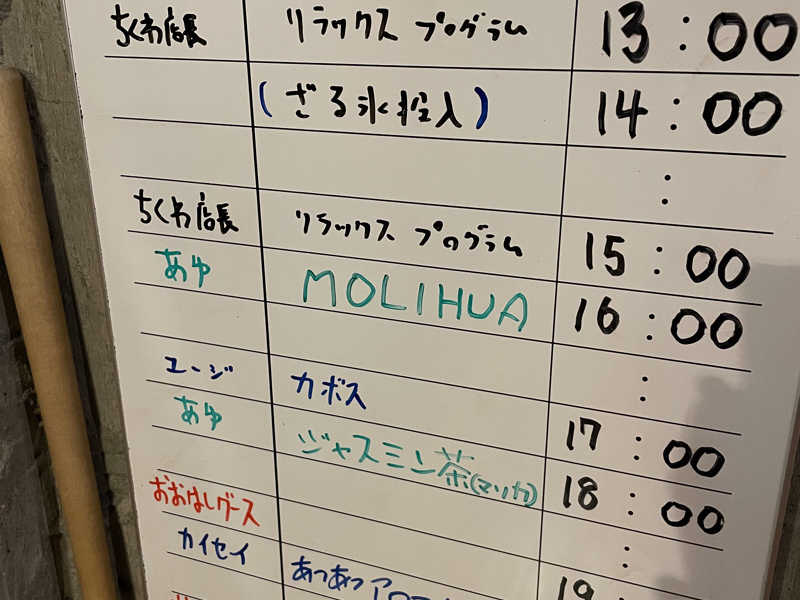 ちくわ店長 リラックス プログラム 13:00
(ざる氷投入) 14:00
:
ちくわ店長 リラックス プログラム 15:00
あゆ MOLIHUA 16:00
:
ユージ カボス 17:00
あゆ ジャスミン茶(マツリカ) 18:00
おおはしグース :
カイセイ あつあつアロマ 19